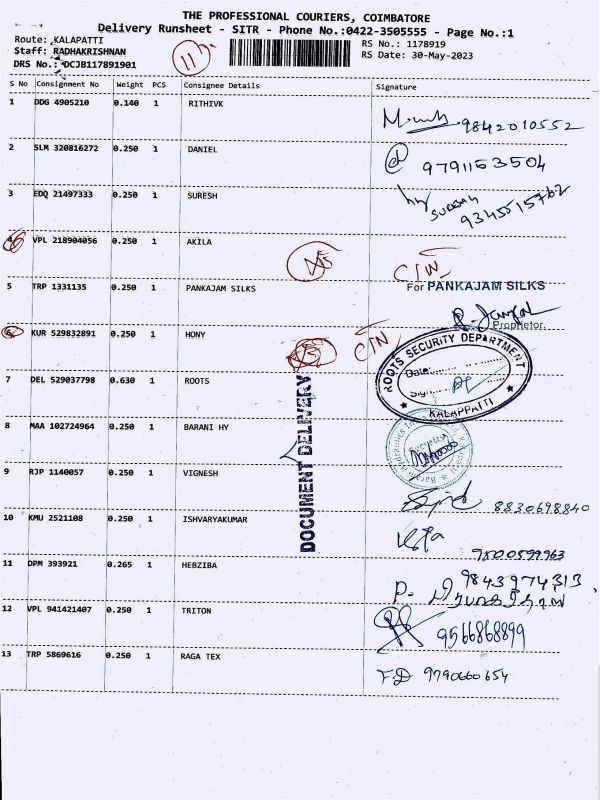 THE PROFESSIONAL COURIERS, COIMBATORE
Delivery Runsheet - SITR - Phone No.:0422-3505555 - Page No.:1
Route: KALAPATTI
Staff: RADHAKRISHNAN
DRS No.: DCJB117891901
11
RS No.: 1178919
RS Date: 30-May-2023
S No Consignment No Weight PCS Consignee Details Signature
1 DDG 4905210 0.140 1 RITHIVK
9842010552
2 SLM 320816272 0.250 1 DANIEL
9791153504
3 EDQ 21497333 0.250 1 SURESH
Suresh
9345515762
4 VPL 218904056 0.250 1 AKILA
5 TRP 1331135 0.250 1 PANKAJAM SILKS
For PANKAJAM SILKS
Proprietor.
6 KUR 529832891 0.250 1 HONY
7 DEL 529037798 0.630 1 ROOTS
ROOTS SECURITY DEPARTMENT
Date:
Sign
KALAPPATTI
8 MAA 102724964 0.250 1 BARANI HY
DOCUMENT DELIVERY
9 RJP 1140057 0.250 1 VIGNESH
8830698840
10 KMU 2521108 0.250 1 ISHVARYAKUMAR
11 DPM 393921 0.265 1 HEBZIBA
9843974313
12 VPL 941421407 0.250 1 TRITON
9566868899
13 TRP 5869616 0.250 1 RAGA TEX
9790660654